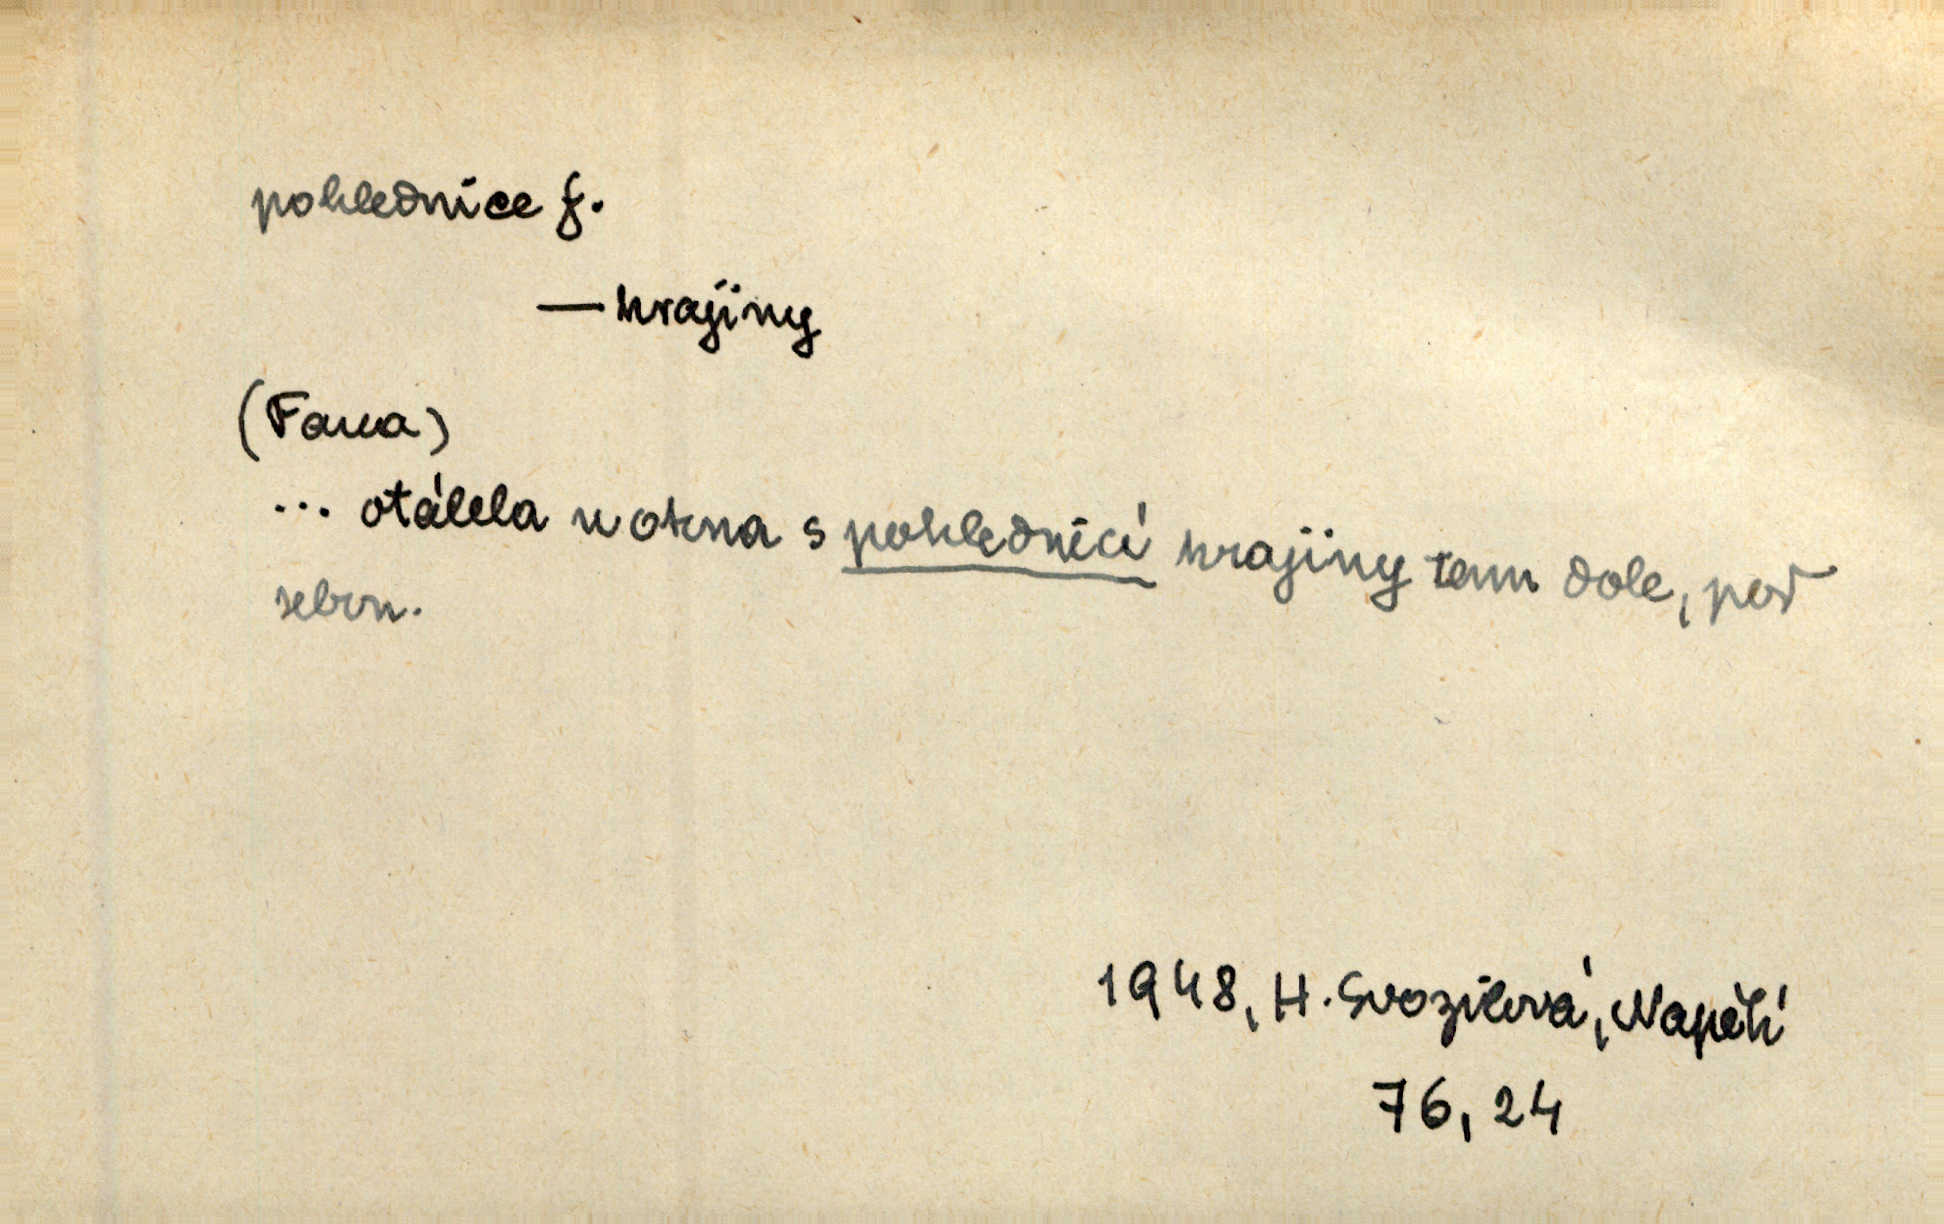 pohlednice f.
— krajiny
(Fama)
... otálela u okna s pohlednicí krajiny tam dole, pod
sebou.
1948, H. Svozilová, Napětí
76, 24